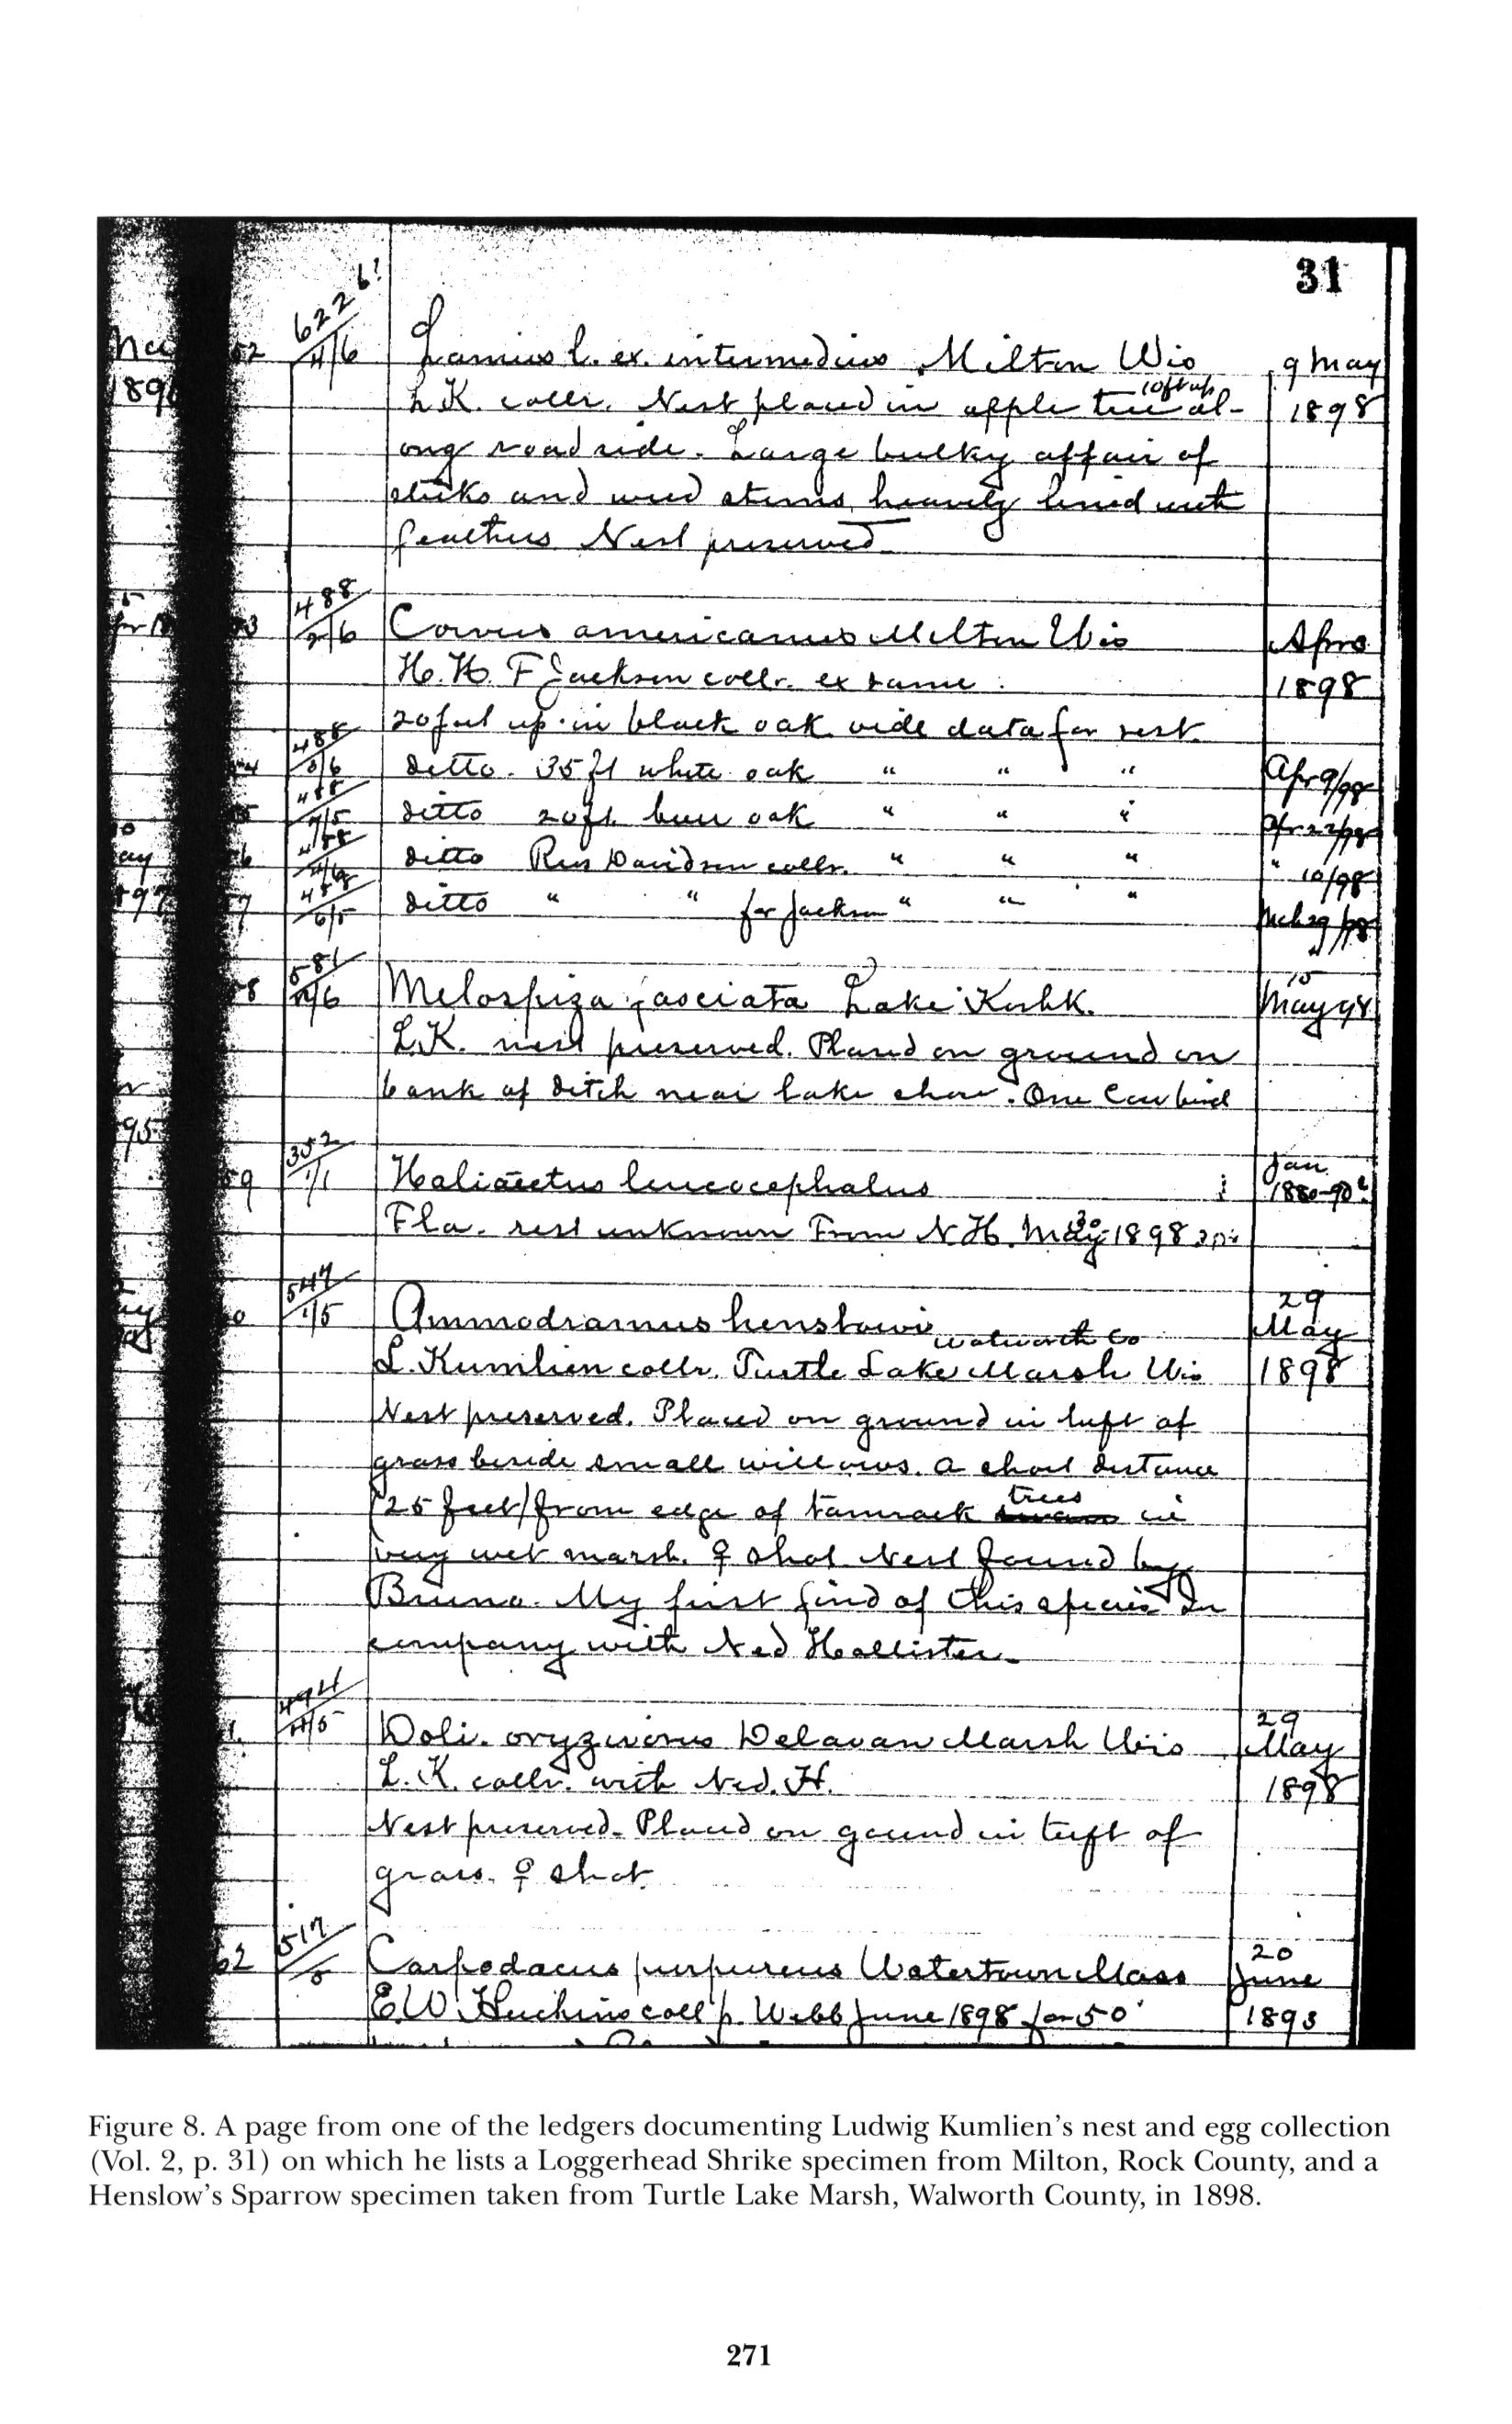 31
622 b?
4/6 Lanius l. ex. intermedius Milton Wis 9 May
L K. collr. Nest placed in apple tree 10 ft up al- 1898
ong road side. Large bulky affair of
sticks and weed stems, heavily lined with
feathers Nest preserved
488
2/6 Corvus americanus Milton Wis Apr
H. H. T Jackson collr. ex same 1898
20 feet up in black oak vide data for rest.
488
3/6 ditto. 35 ft white oak " " " Apr 9/98
488
7/5 ditto 20 ft. burr oak " " " Apr 22/98
488
4/6 ditto Russ Davidson collr. " " " " 10/98
488
6/5 ditto " " for Jackson " " " Mch 29/98
581
8 6 Melospiza fasciata Lake Koshk. 15 May 98
L.K. nest preserved. Placed on ground on
bank of ditch near lake shore. One Cowbird
95
352 Jan.
59 1/1 Haliaetus leucocephalus 1880-90?
Fla. rest unknown From N H. May 30 1898
547 29
0 1/5 Ammodramus henslowi Walworth Co May
L. Kumlien collr. Turtle Lake Marsh Wis 1898
Nest preserved. Placed on ground in tuft of
grass beside small willows. a short distance
(25 feet) from edge of tamrack trees in
very wet marsh. ♀ shot Nest found by
Bruno. My first find of this species In
company with Ned Hollister.
494 29
1. 4/5 Doli. oryzivorus Delavan Marsh Wis May
L. K. collr. with Ned. H. 1898
Nest preserved. Placed on gound in tuft of
grass. ♀ shot.
517 20
62 /5 Carpodacus purpureus Watertown Mass June
E.W. coll p. Webb June 1898 for 50 1893
Figure 8. A page from one of the ledgers documenting Ludwig Kumlien's nest and egg collection
(Vol. 2, p. 31) on which he lists a Loggerhead Shrike specimen from Milton, Rock County, and a
Henslow's Sparrow specimen taken from Turtle Lake Marsh, Walworth County, in 1898.
271